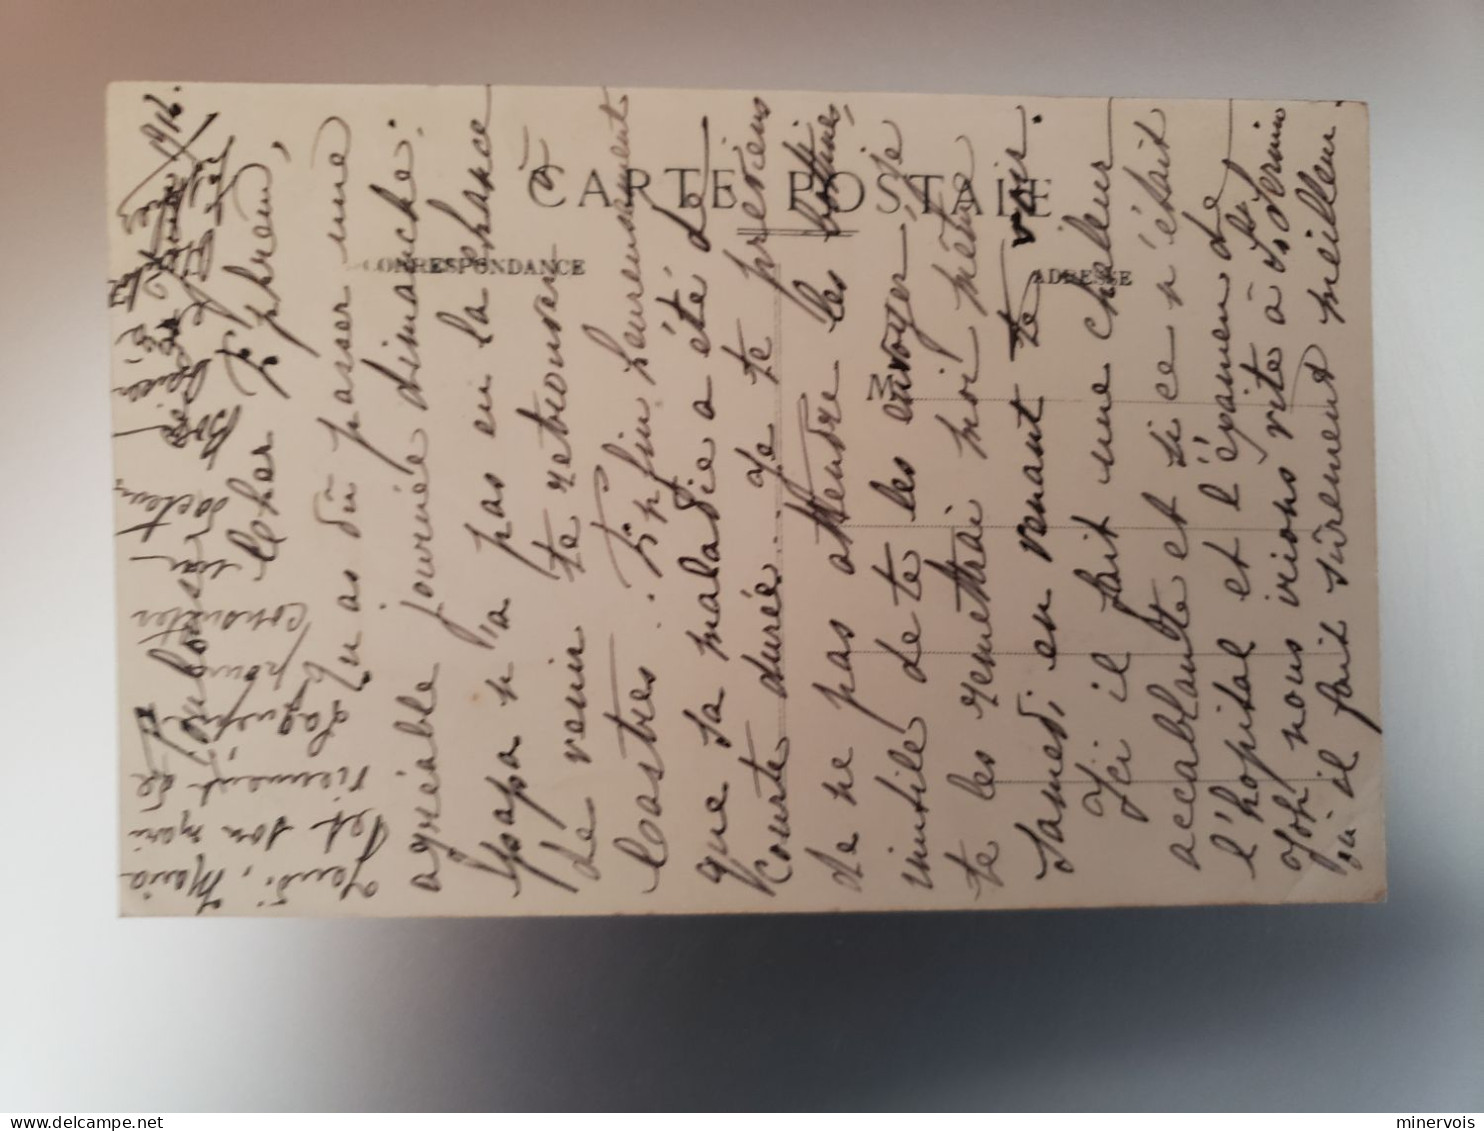 CARTE POSTALE
CORRESPONDANCE
ADRESSE
M
Toulouse
1916.
Cher Ephrem,
Tu as dû passer une
agréable journée dimanche.
Papa n'a pas eu la chance
de venir te retrouver à
Castres. Enfin heureusement
que ta maladie a été de
courte durée. Je te préviens
de ne pas attendre les bottines,
inutile de te les envoyer, je
te les remettrai moi même
samedi, en venant te voir.
Ici il fait une chaleur
accablante et si ce n'était
l'hôpital et l'examen de
Job nous irions vite à St Sernin
où il fait sûrement meilleur.
Jeudi, Maria
et son mari
viennent de
pour
consulter
un
docteur